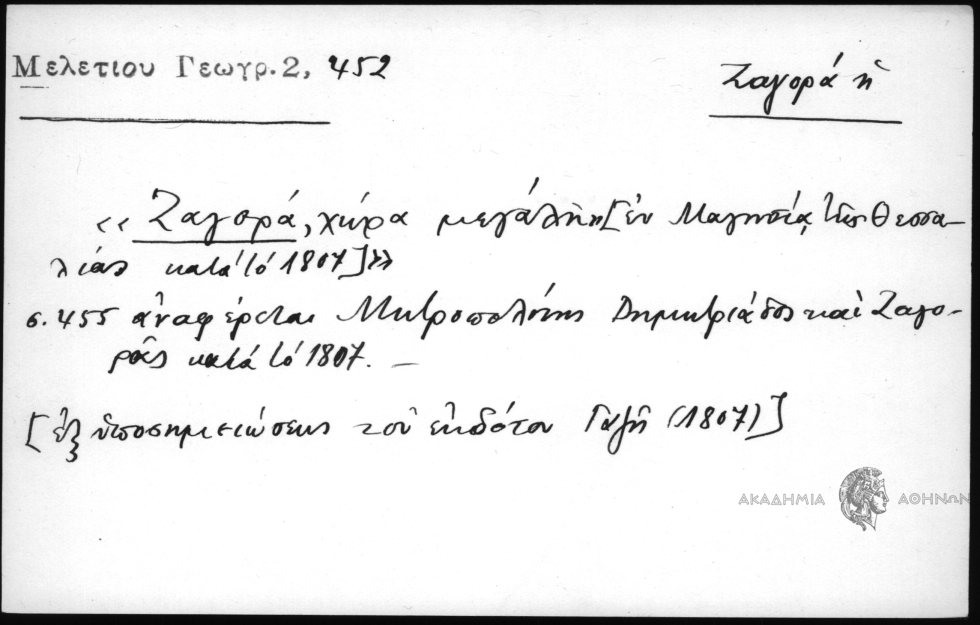 Μελετιου Γεωγρ. 2, 452
Ζαγορά ἡ
«Ζαγορά, χώρα μεγάλη» [ἐν Μαγνησίᾳ τῆς Θεσσα-
λίας κατὰ τό 1807]»
σ. 455 ἀναφέρεται Μητροπολίτης Δημητριάδος καὶ Ζαγο-
ρᾶς κατὰ τό 1807. —
[ἐξ ὑποσημειώσεως τοῦ ἐκδότου Γαζῆ (1807)]
ΑΚΑΔΗΜΙΑ ΑΘΗΝΩΝ